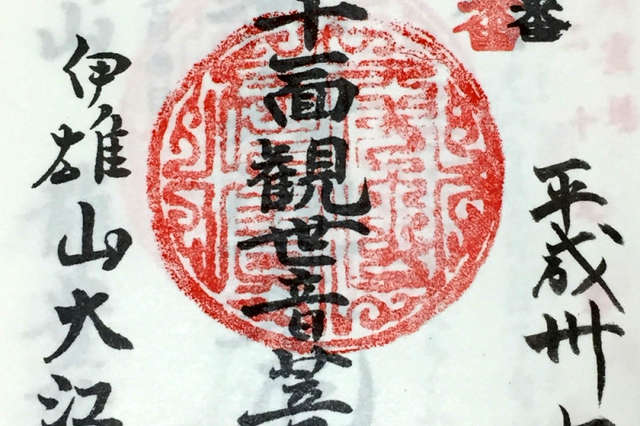 番
番
平成卅
十一面觀世音菩
伊雄山大江